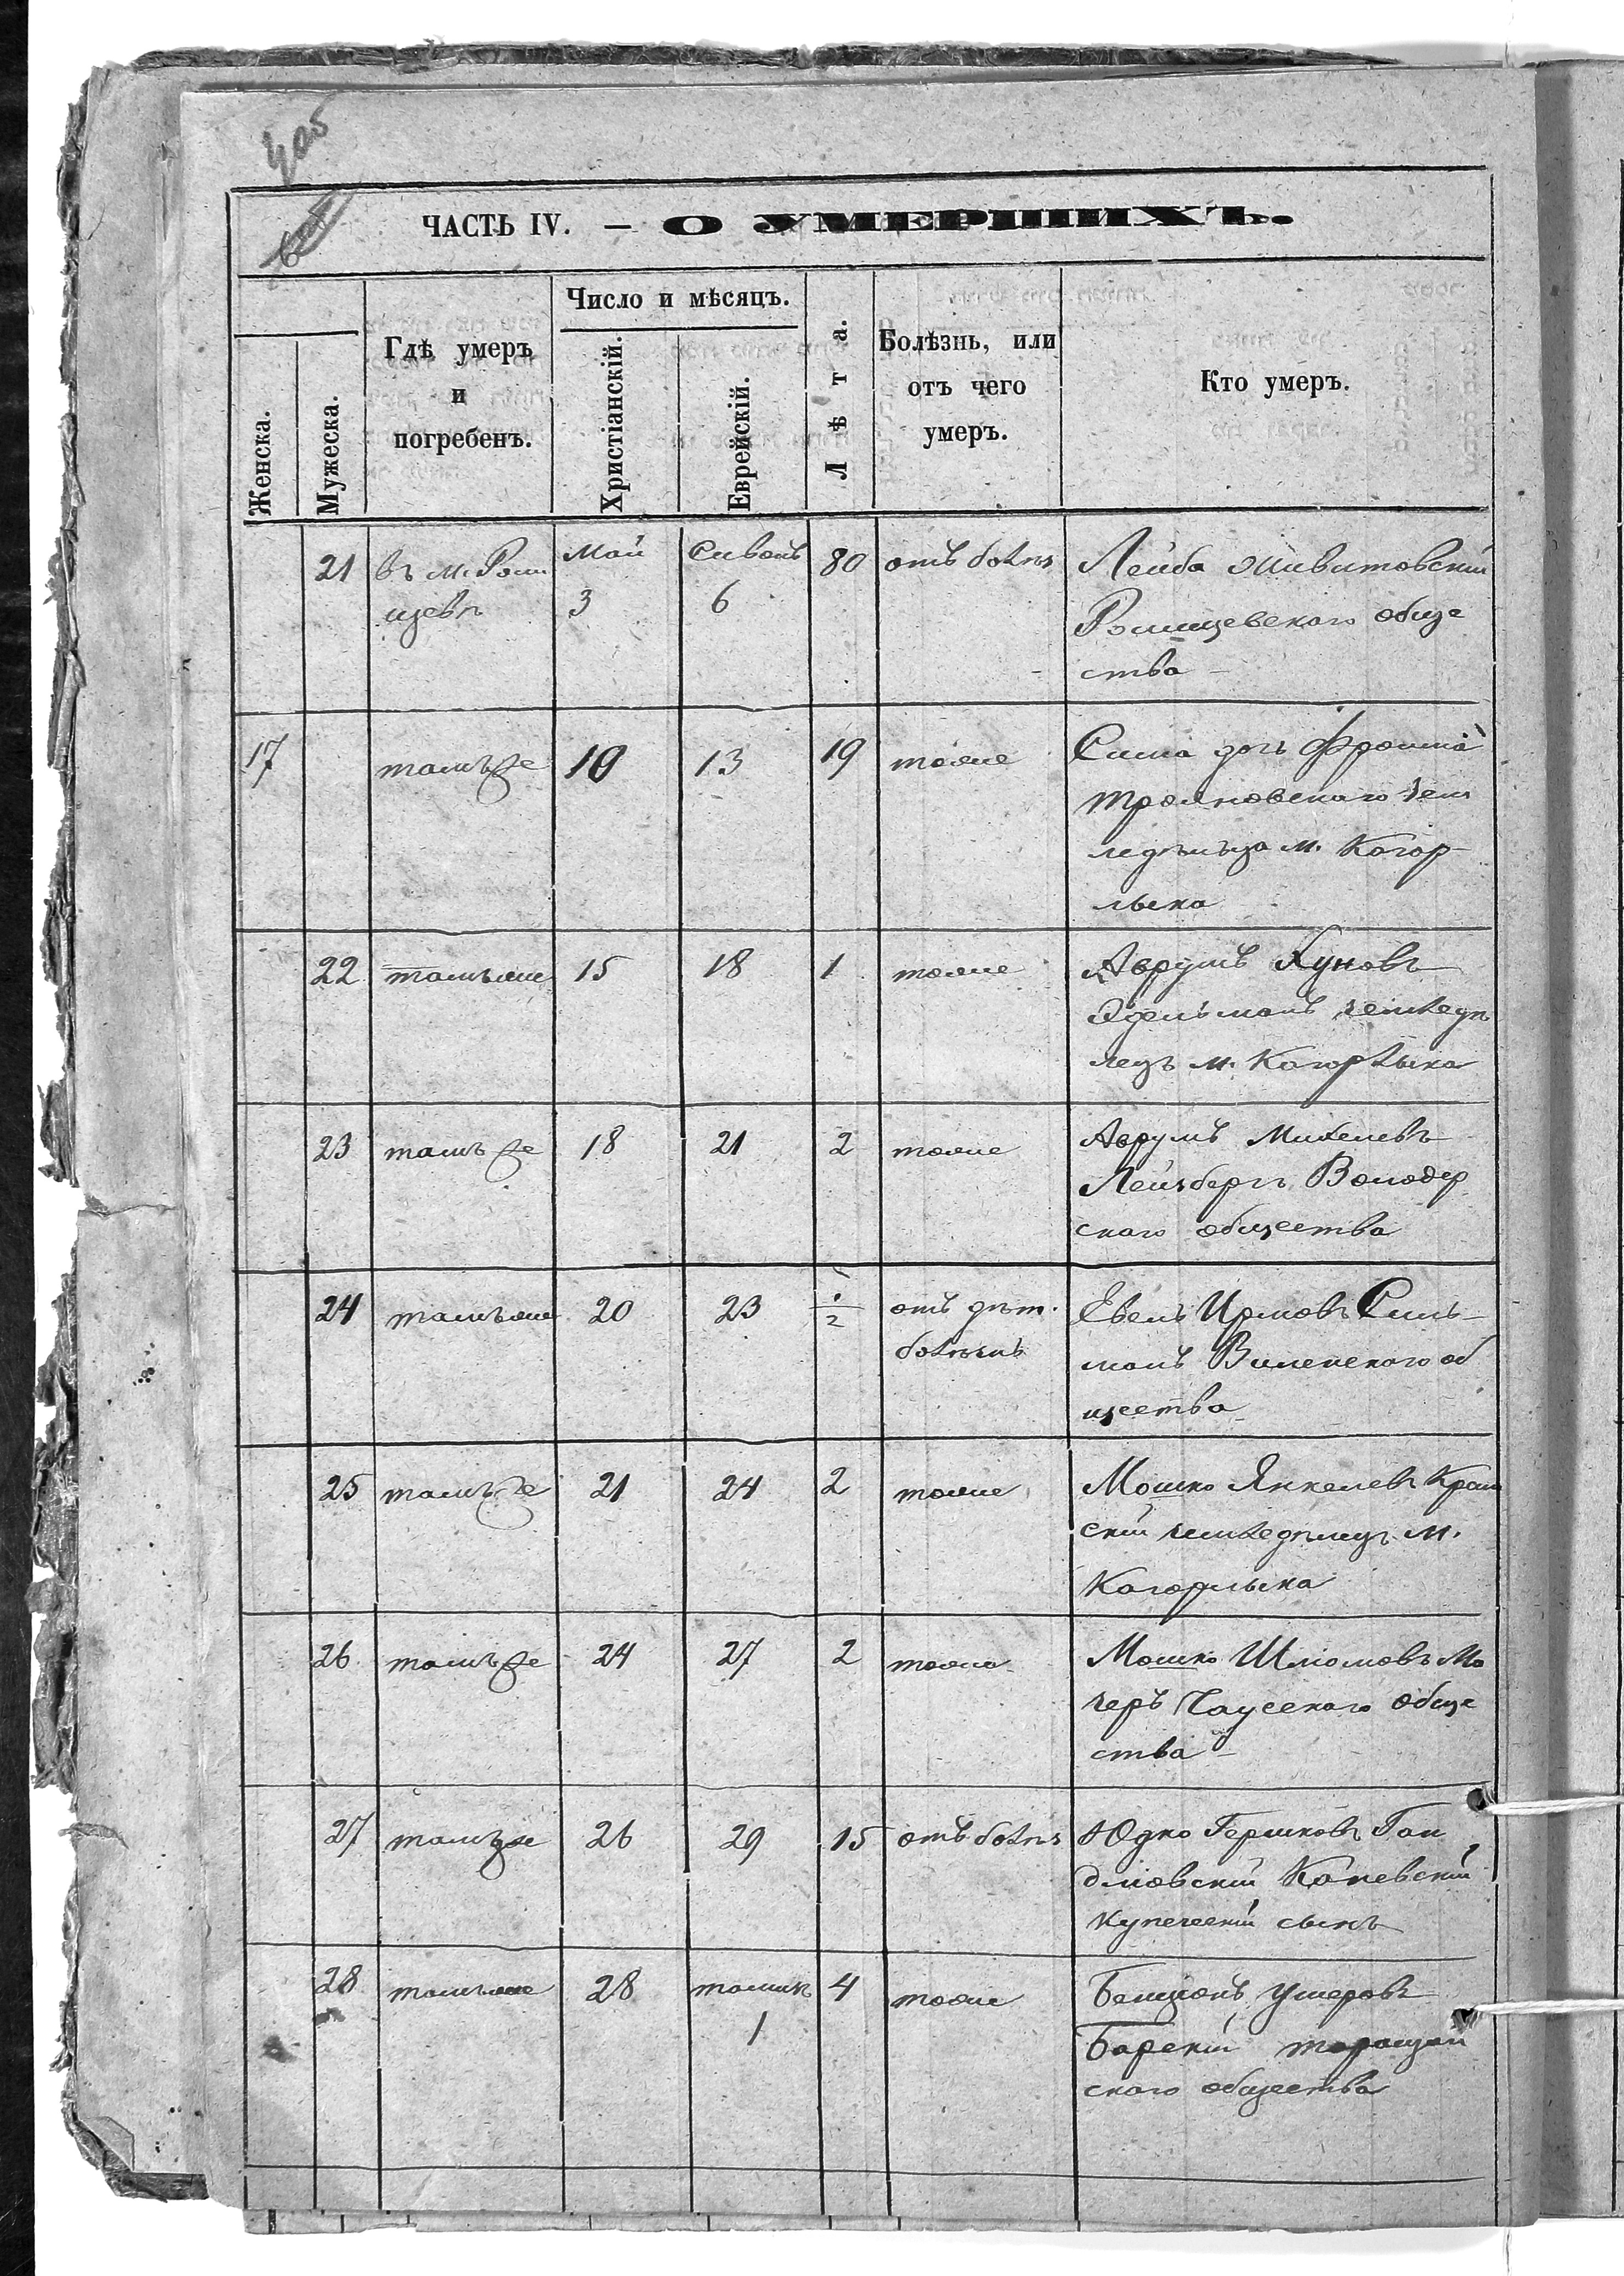 4об
ЧАСТЬ IV. — О УМЕРШИХЪ.
Женска.
Мужеска.
Гдѣ умеръ
и
погребенъ.
Число и мѣсяцъ.
Христіанскій.
Еврейскій.
Лѣта.
Болѣзнь, или
отъ чего
умеръ.
Кто умеръ.
21 въ м. Рощ Май Сивань 80 отъ болѣз Лейба Живитовскій
щевѣ 3 6 Ромщевского обще
ства
17 тамъ же 10 13 19 тоже Сима дочь Фроима
Трояновскаго зем
ледѣльца м. Кагар
лыка
22 тамъ же 15 18 1 тоже Аврумъ Хуновъ
Эдельманъ земледѣ
лецъ м. Кагарлыка
23 тамъ же 18 21 2 тоже Аврумъ Михелевъ
Лейзбергъ Володар
скаго общества
24 тамъ же 20 23 1/2 отъ дѣт. Евель Ирмовъ
болѣзнь манъ об
щества
25 тамъ же 21 24 2 тоже Мошко Янкелевъ
скій земледѣлецъ м.
Кагарлыка
26 тамъ же 24 27 2 тоже Мошко Шліомовъ Мо
черъ Чаусскаго обще
ства
27 тамъ же 26 29 15 отъ болѣз Юдко Гершковъ Гай
Каневскій
купеческій сынъ
28 тамъ же 28 тамизъ 4 тоже Бенціонъ Ушеровъ
1 Барскій таращан
скаго общества